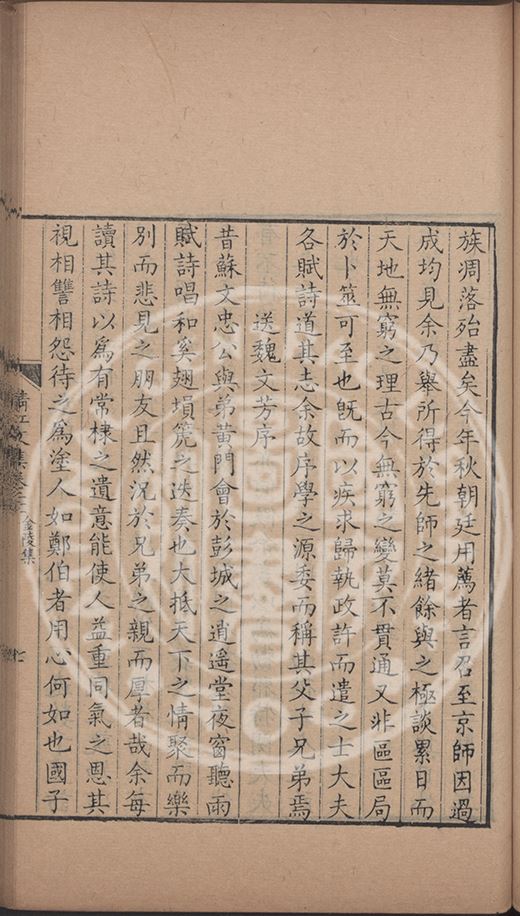 族凋落殆盡矣今年秋朝廷用薦者言召至京師因過
成均見余乃舉所得於先師之緒餘與之極談累日而
天地無窮之理古今無窮之變莫不貫通又非區區局
於卜筮可至也旣而以疾求歸執政許而遣之士大夫
各賦詩道其志余故序學之源委而稱其父子兄弟焉
送魏文芳序
昔蘇文忠公與弟黄門會於彭城之逍遥堂夜窗聽雨
賦詩唱和奚翅塤箎之迭奏也大抵天下之情聚而樂
別而悲見之朋友且然況於兄弟之親而厚者哉余每
讀其詩以爲有常棣之遺意能使人益重同氣之恩其
視相讐相怨待之爲塗人如鄭伯者用心何如也國子
清江文集卷二 金陵集